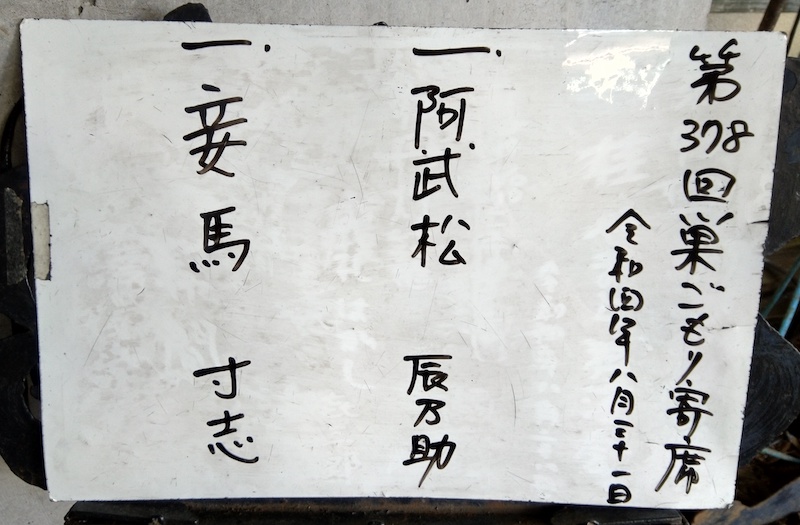 第378回巣ごもり寄席
令和四年八月三十一日
一.阿武松 辰乃助
一.妾馬 寸志